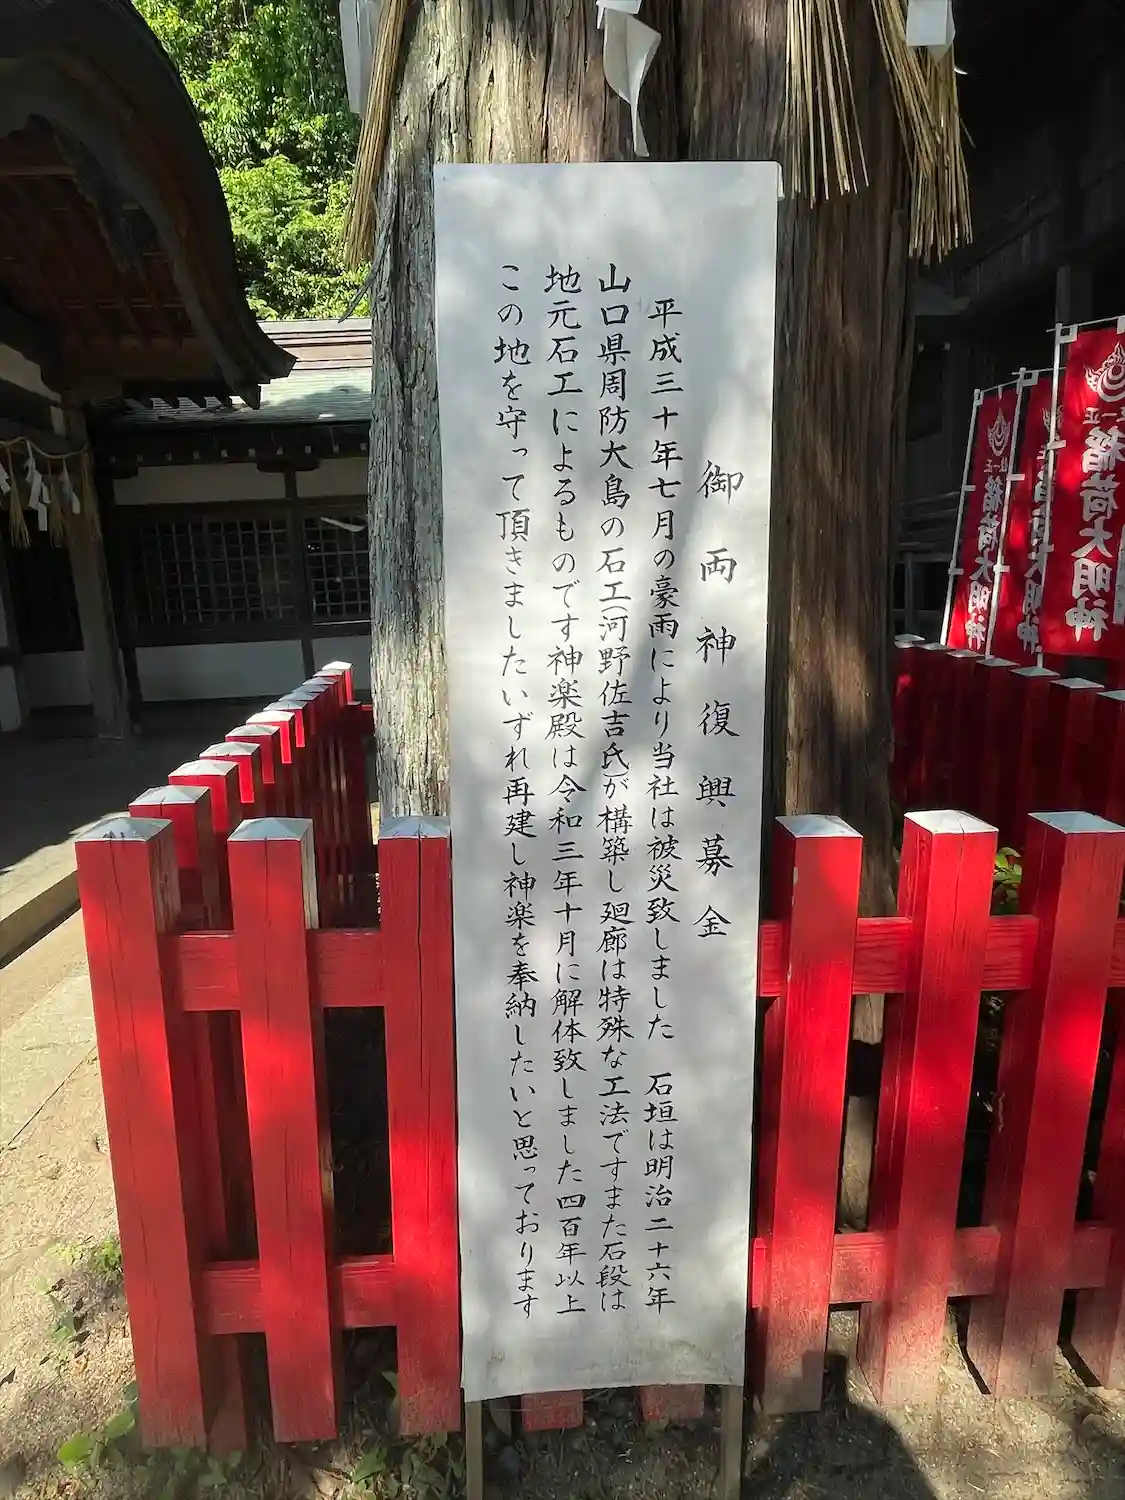 御両神復興募金
平成三十年七月の豪雨により当社は被災致しました 石垣は明治二十六年
山口県周防大島の石工(河野佐吉氏)が構築し廻廊は特殊な工法ですまた石段は
地元石工によるものです神楽殿は令和三年十月に解体致しました四百年以上
この地を守って頂きましたいずれ再建し神楽を奉納したいと思っております
正一
稲荷大明神
正一
稲荷大明神
稲荷大明神